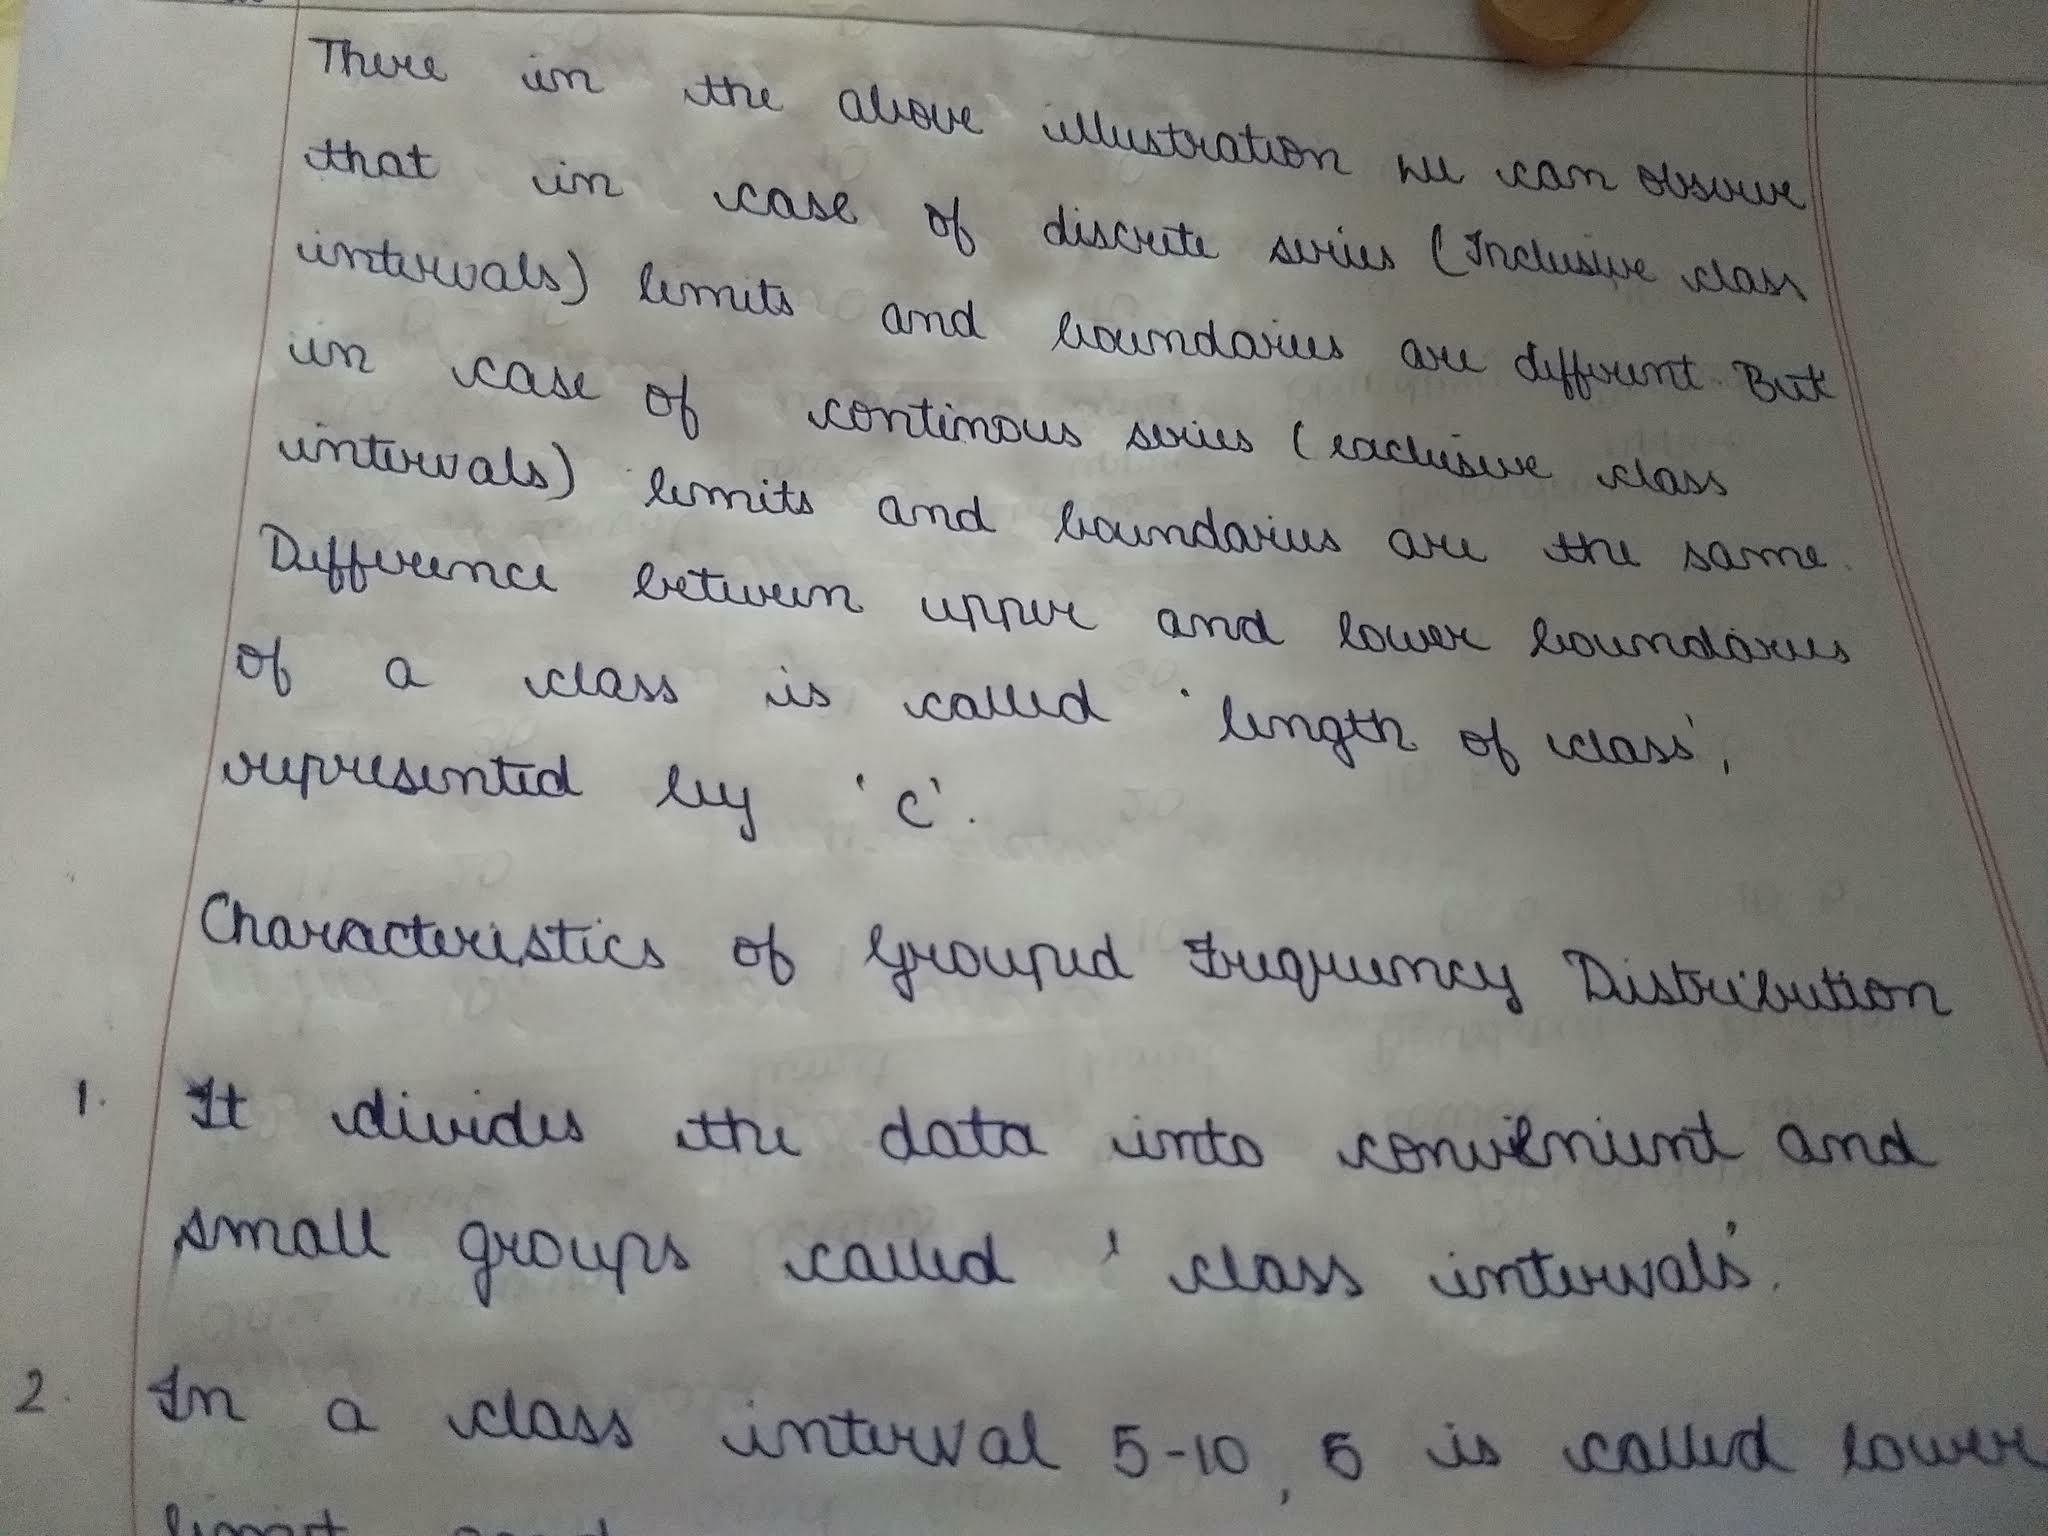 There in the above illustration we can observe
that in case of discrete series (Inclusive class
intervals) limits and boundaries are different. But
in case of continous series (exclusive class
intervals) limits and boundaries are the same.
Difference between upper and lower boundaries
of a class is called 'length of class',
represented by 'c'.
Characteristics of Grouped Frequency Distribution
1. It divides the data into convenient and
small groups called 'class intervals'.
2. In a class interval 5-10, 5 is called lower
limit and